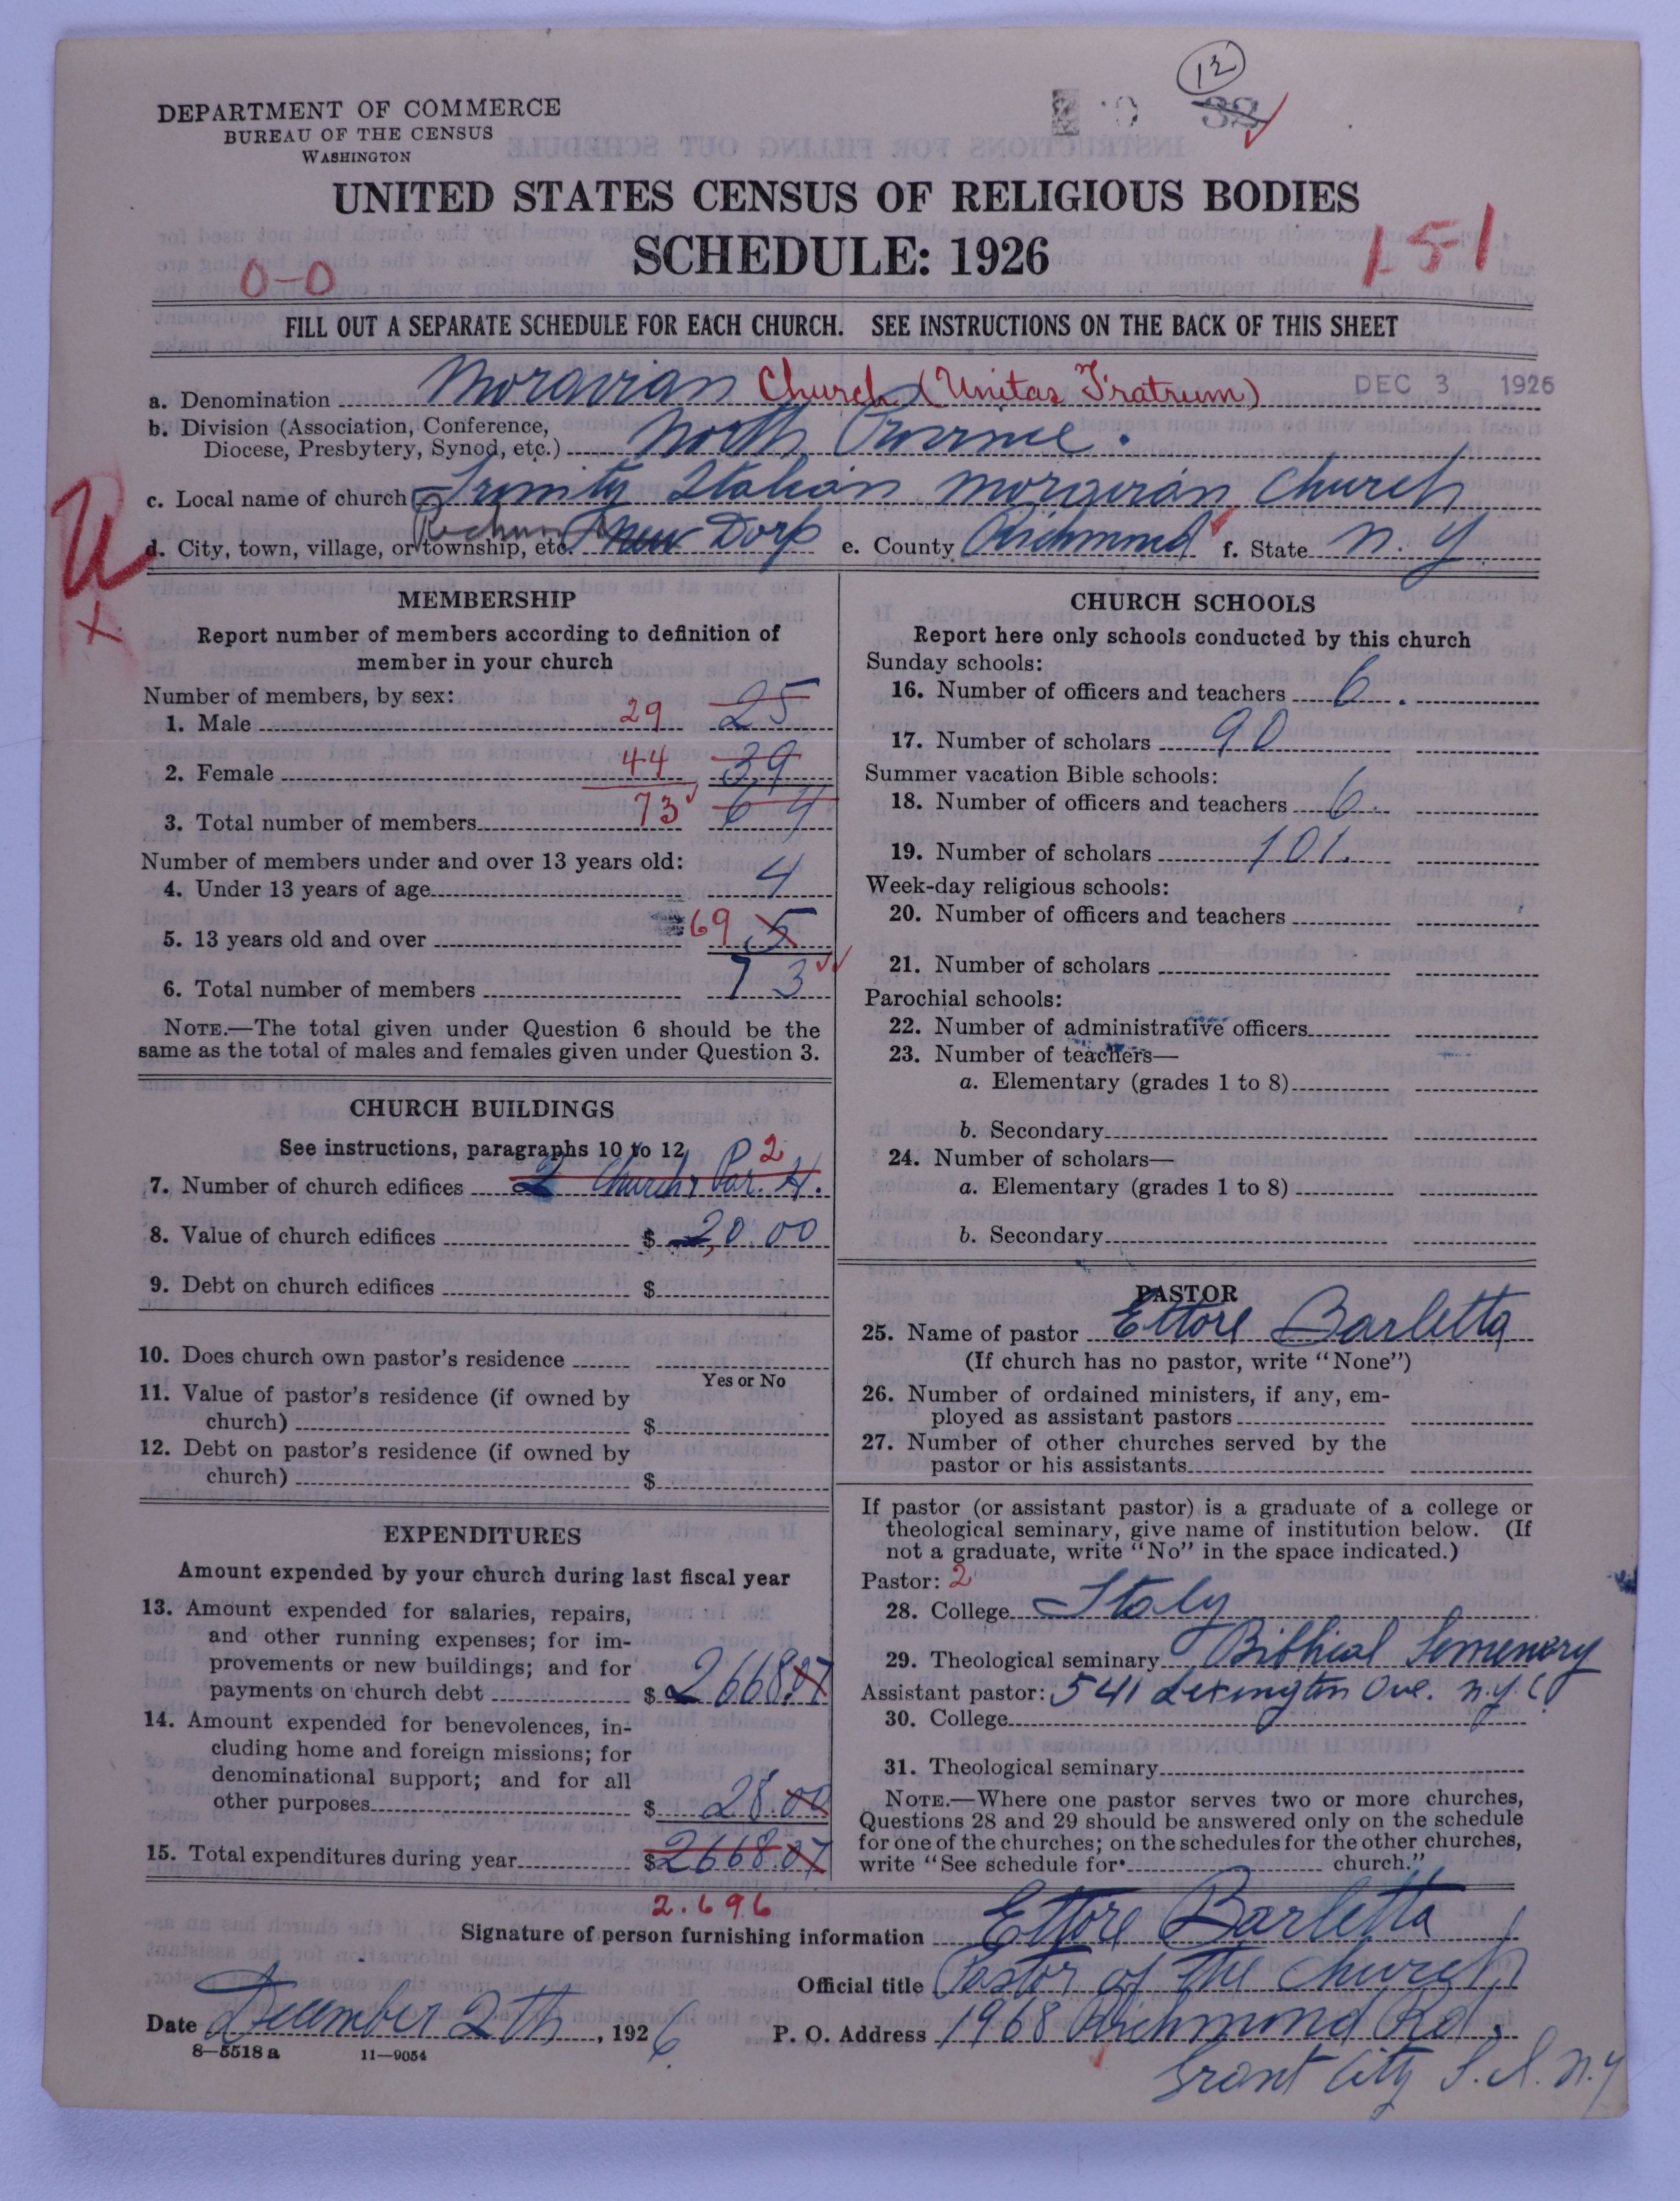 12
32
DEPARTMENT OF COMMERCE
BUREAU OF THE CENSUS
WASHINGTON
UNITED STATES CENSUS OF RELIGIOUS BODIES
SCHEDULE: 1926
0-0
151
FILL OUT A SEPARATE SCHEDULE FOR EACH CHURCH. SEE INSTRUCTIONS ON THE BACK OF THIS SHEET
a. Denomination Moravian Church (Unitas Fratrum) DEC 3 1926
b. Division (Association, Conference,
Diocese, Presbytery, Synod, etc.) North Province.
c. Local name of church Trinity Italian Moravian Church
d. City, town, village, or township, etc. New Dorp e. County Richmond f. State N. Y
MEMBERSHIP
Report number of members according to definition of
member in your church
Number of members, by sex:
1. Male 29 25
2. Female 44 39
3. Total number of members 73 64
Number of members under and over 13 years old:
4. Under 13 years of age 4
5. 13 years old and over 69 5
6. Total number of members 73
NOTE.—The total given under Question 6 should be the
same as the total of males and females given under Question 3.
CHURCH BUILDINGS
See instructions, paragraphs 10 to 12
2
7. Number of church edifices 2 Church, Par. H.
8. Value of church edifices $ 20.00
9. Debt on church edifices $
10. Does church own pastor's residence
Yes or No
11. Value of pastor's residence (if owned by
church) $
12. Debt on pastor's residence (if owned by
church) $
EXPENDITURES
Amount expended by your church during last fiscal year
13. Amount expended for salaries, repairs,
and other running expenses; for im-
provements or new buildings; and for
payments on church debt $ 2668.07
14. Amount expended for benevolences, in-
cluding home and foreign missions; for
denominational support; and for all
other purposes $ 28.00
15. Total expenditures during year $2668.07
2.696
CHURCH SCHOOLS
Report here only schools conducted by this church
Sunday schools:
16. Number of officers and teachers 6.
17. Number of scholars 90
Summer vacation Bible schools:
18. Number of officers and teachers 6.
19. Number of scholars 101.
Week-day religious schools:
20. Number of officers and teachers
21. Number of scholars
Parochial schools:
22. Number of administrative officers
23. Number of teachers—
a. Elementary (grades 1 to 8)
b. Secondary
24. Number of scholars—
a. Elementary (grades 1 to 8)
b. Secondary
PASTOR
25. Name of pastor Ettore Barletta
(If church has no pastor, write "None")
26. Number of ordained ministers, if any, em-
ployed as assistant pastors
27. Number of other churches served by the
pastor or his assistants
If pastor (or assistant pastor) is a graduate of a college or
theological seminary, give name of institution below. (If
not a graduate, write "No" in the space indicated.)
Pastor: 2
28. College Italy
29. Theological seminary Biblical Semenery
Assistant pastor: 541 Lexington Ave. N.Y.C
30. College
31. Theological seminary
NOTE.—Where one pastor serves two or more churches,
Questions 28 and 29 should be answered only on the schedule
for one of the churches; on the schedules for the other churches,
write "See schedule for church."
Signature of person furnishing information Ettore Barletta
Official title Pastor of the Church
Date December 2th, 1926 P. O. Address 1968 Richmond Rd.
8—5518 a 11—9054
Grant City S. I. N.Y